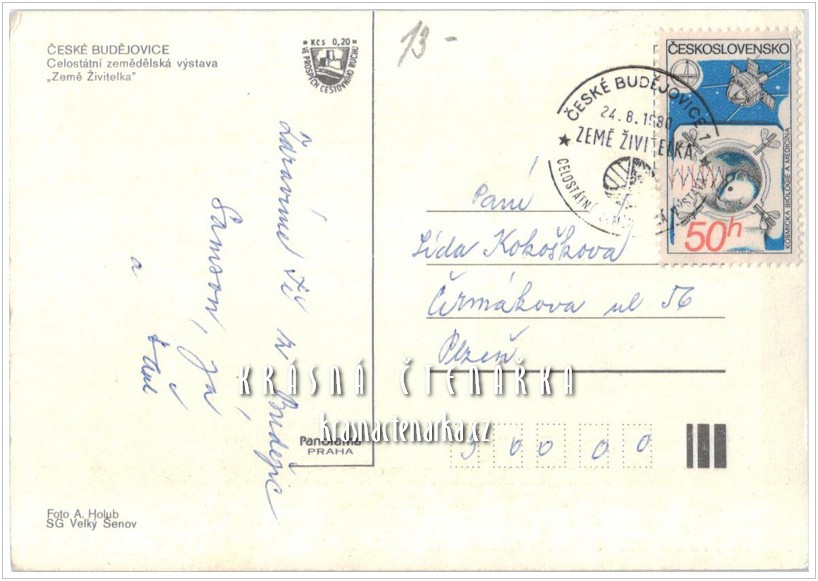 ČESKÉ BUDĚJOVICE
Celostátní zemědělská výstava
„Země Živitelka"
Kčs 0,20
VE PROSPĚCH CESTOVNÍHO RUCHU
13-
ČESKOSLOVENSKO
KOSMICKÁ BIOLOGIE A MEDICÍNA
50h
ČESKÉ BUDĚJOVICE 1
24.8.1980
ZEMĚ ŽIVITELKA
CELOSTÁTNÍ
VÝSTAVA
Zdravíme Tě z Budějic
Samson, Já
a
Paní
Lída Kokoškova
Čermákova ul 56
Plzeň
KRÁSNÁ ČTENÁŘKA
krasnactenarka.cz
Panorama
PRAHA
300 00
Foto A. Holub
SG Velký Šenov